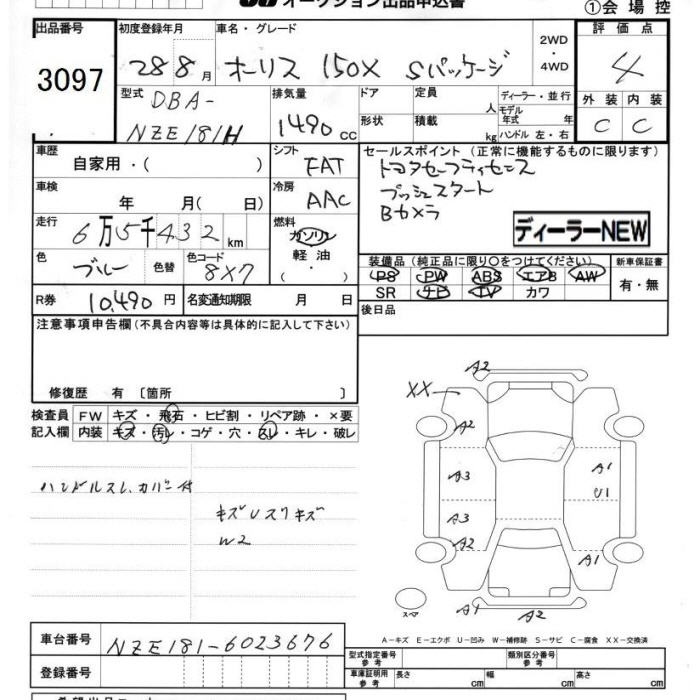 オークション出品申込書
①会場控
出品番号 3097
初度登録年月 28 8月
車名・グレード オーリス 150X Sパッケージ
2WD・4WD
評価点 4
外装 内装
C C
型式 DBA-NZE181H
排気量 1490cc
ドア 形状
定員 人
積載 kg
ディーラー・並行
モデル年式 年
ハンドル 左・右
車歴 自家用・( )
シフト FAT
セールスポイント (正常に機能するものに限ります)
トヨタセーフティセンス
プッシュスタート
Bカメラ
ディーラーNEW
車検 年 月( 日)
冷房 AAC
走行 6万5千432km
燃料 ガソリン
軽油
( ・ )
色 ブルー 色替 色コード 8X7
装備品 (純正品に限り○をつけてください)
新車保証書
PS PW ABS エアB AW
有・無
SR ナビ TV カワ
R券 10,490円 名変通知期限 月 日
後日品
注意事項申告欄 (不具合内容等は具体的に記入して下さい)
修復歴 有 〔箇所 〕
検査員 FW キズ・飛石・ヒビ割・リペア跡・×要
記入欄 内装 キズ・汚レ・コゲ・穴・スレ・キレ・破レ
ハンドルスレ、カバー付
キズUスリキズ
W2
A2
XX
A2
A3
A1
U1
A3
A2
A1
スペア
A1
A2
A-キズ E-エクボ U-凹み W-補修跡 S-サビ C-腐食 XX-交換済
車台番号 NZE181-6023676
型式指定番号 参考
類別区分番号 参考
登録番号
車庫証明用 参考 長さ cm 幅 cm 高さ cm